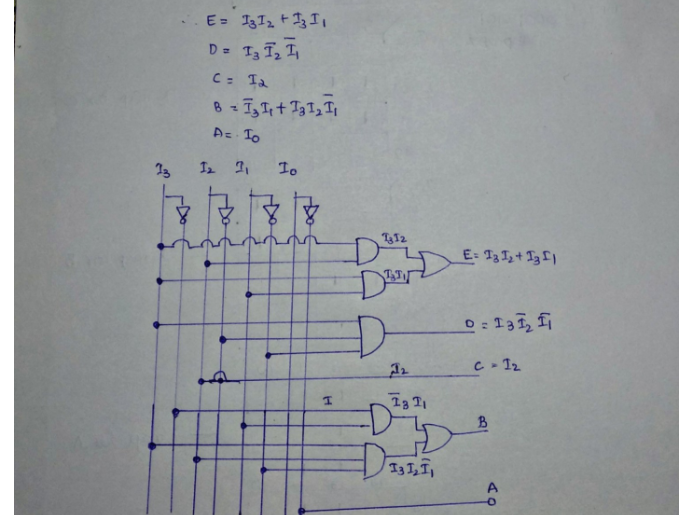 ∴ E = I₃I₂ + I₃I₁
D = I₃ I̅₂ I̅₁
C = I₂
B = I̅₃I₁ + I₃I₂I̅₁
A = I₀
I₃ I₂ I₁ I₀
I₃I₂
E = I₃I₂ + I₃I₁
I₃I₁
D = I₃ I̅₂ I̅₁
I₂ C = I₂
I I̅₃ I₁
B
I₃I₂I̅₁
A